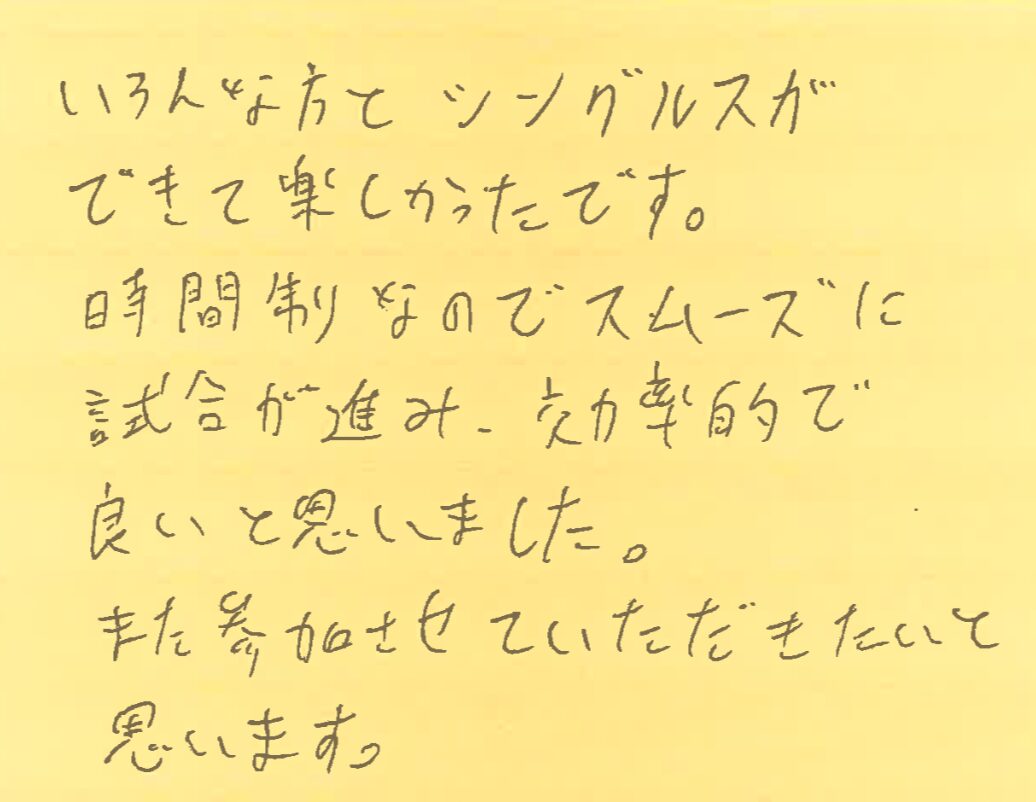 いろんな方とシングルスが
できて楽しかったです。
時間制なのでスムーズに
試合が進み、効率的で
良いと思いました。
また参加させていただきたいと
思います。